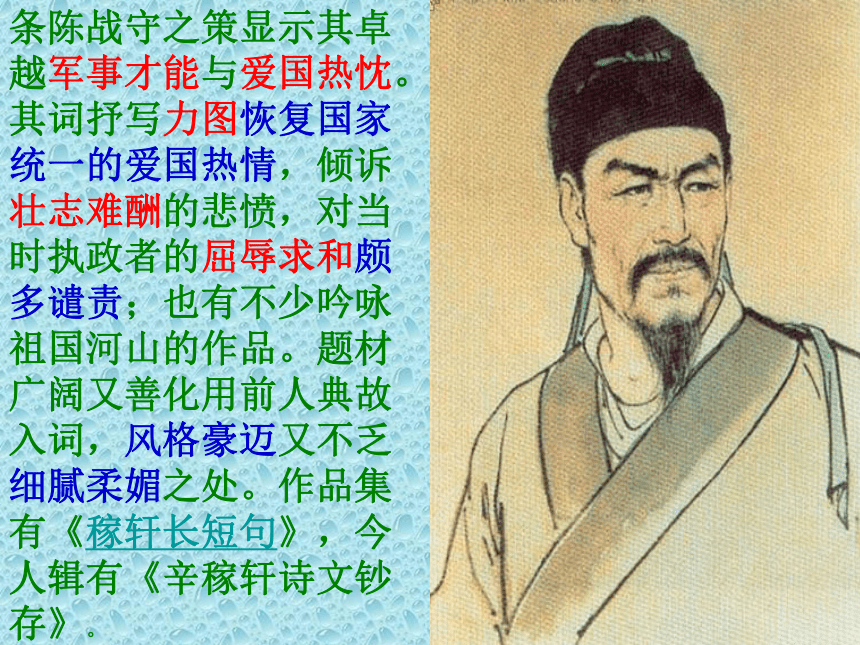 条陈战守之策显示其卓
越军事才能与爱国热忱。
其词抒写力图恢复国家
统一的爱国热情，倾诉
壮志难酬的悲愤，对当
时执政者的屈辱求和颇
多谴责；也有不少吟咏
祖国河山的作品。题材
广阔又善化用前人典故
入词，风格豪迈又不乏
细腻柔媚之处。作品集
有《稼轩长短句》，今
人辑有《辛稼轩诗文钞
存》。